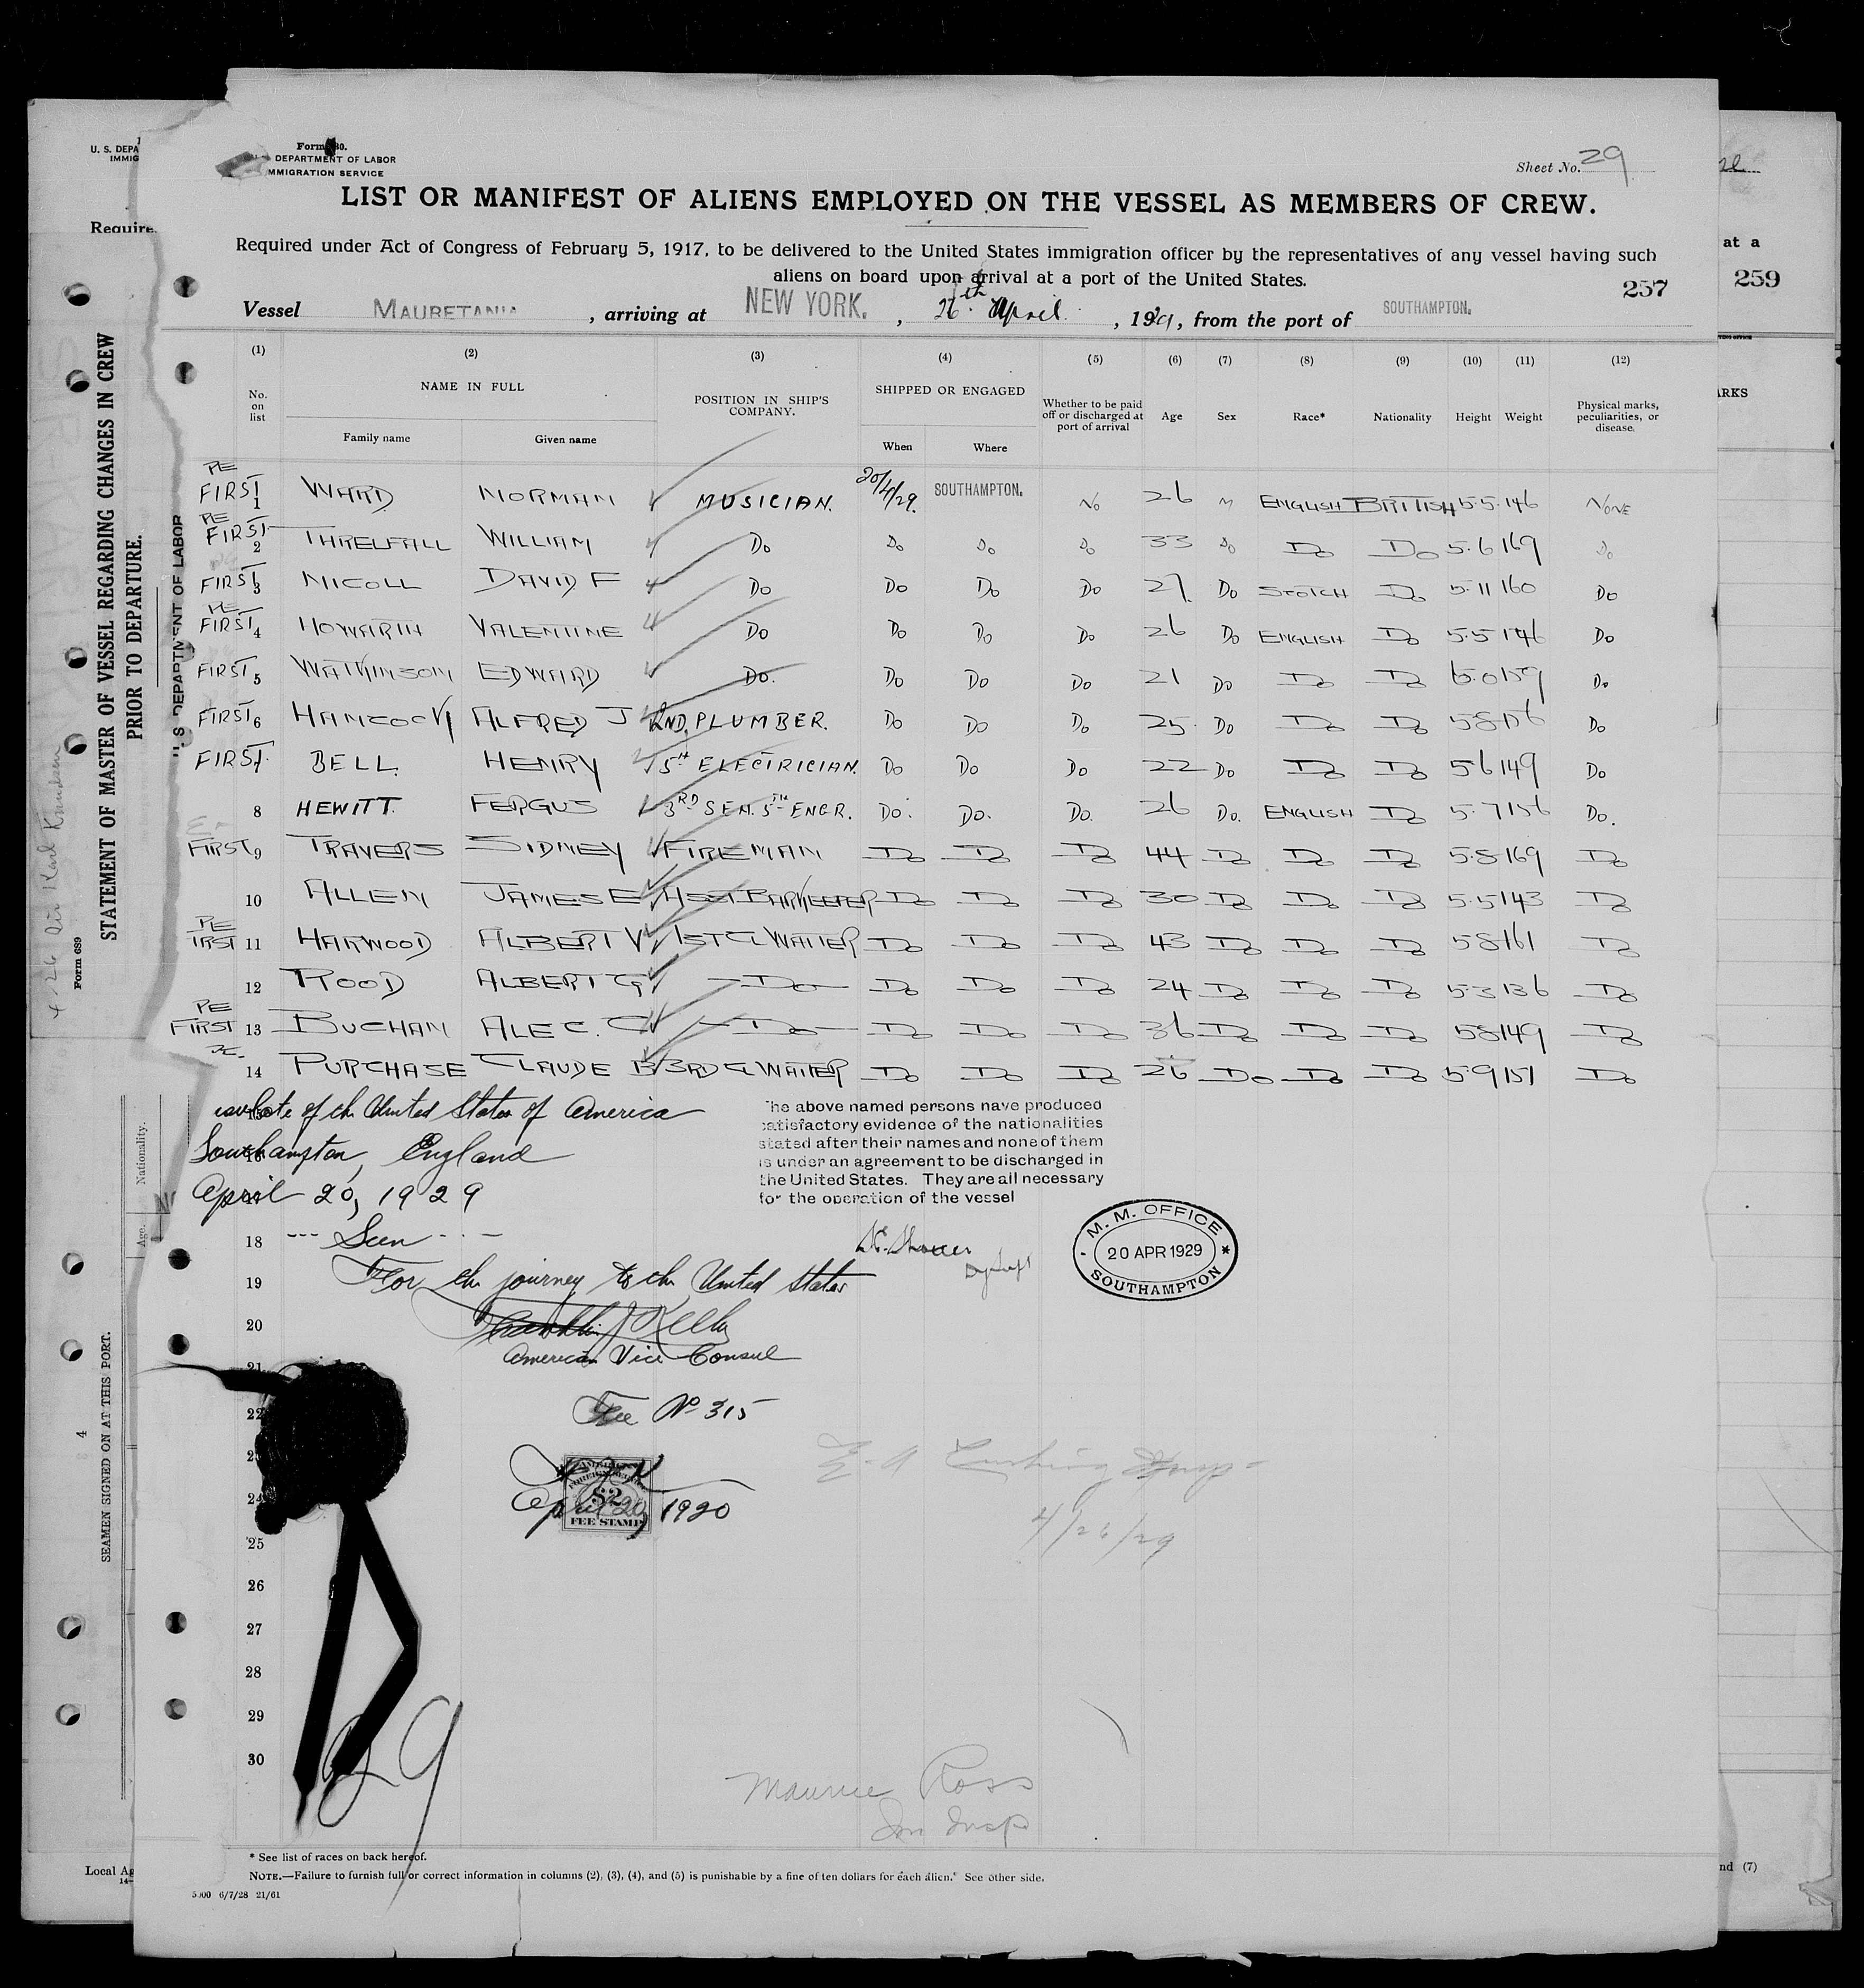 Form 680.
DEPARTMENT OF LABOR
MMIGRATION SERVICE
Sheet No. 29
LIST OR MANIFEST OF ALIENS EMPLOYED ON THE VESSEL AS MEMBERS OF CREW.
Required under Act of Congress of February 5, 1917, to be delivered to the United States immigration officer by the representatives of any vessel having such
aliens on board upon arrival at a port of the United States.
257
Vessel MAURETANIA, arriving at NEW YORK., 26th April, 1929, from the port of SOUTHAMPTON.
(1) (2) (3) (4) (5) (6) (7) (8) (9) (10) (11) (12)
No. on list NAME IN FULL Family name Given name POSITION IN SHIP'S COMPANY. SHIPPED OR ENGAGED When Where Whether to be paid off or discharged at port of arrival Age Sex Race* Nationality Height Weight Physical marks, peculiarities, or disease.
PE
FIRST 1 WARD NORMAN MUSICIAN. 20/4/29. SOUTHAMPTON. No 26 M ENGLISH BRITISH 5.5 146 NONE
PE
FIRST 2 THRELFALL WILLIAM Do Do Do Do 33 Do Do Do 5.6 169 Do
FIRST 3 NICOLL DAVID F Do Do Do Do 27 Do SCOTCH Do 5.11 160 Do
PE
FIRST 4 HOWARTH VALENTINE Do Do Do Do 26 Do ENGLISH Do 5.5 146 Do
FIRST 5 WATKINSON EDWARD Do. Do Do Do 21 Do Do Do 6.0 159 Do
FIRST 6 HANCOCK ALFRED J 2ND. PLUMBER. Do Do Do 25 Do Do Do 5.8 156 Do
FIRST 7 BELL. HENRY 5TH ELECIRICIAN. Do Do Do 22 Do Do Do 5 6 149 Do
8 HEWITT. FERGUS 3RD SEN. 5TH ENGR. Do. Do. Do. 26 Do. ENGLISH Do 5.7 156 Do.
FIRST 9 TRAVERS SIDNEY FIREMAN Do Do Do 44 Do Do Do 5.8 169 Do
10 ALLEN JAMES E. ASST BARKEEPER Do Do Do 30 Do Do Do 5.5 143 Do
PE
IRST 11 HARWOOD ALBERT V 1ST CL WAITER Do Do Do 43 Do Do Do 5 8 161 Do
12 ROOD ALBERT G Do Do Do Do 24 Do Do Do 5.3 136 Do
PE
FIRST 13 BUCHAN ALEC. C Do Do Do Do 36 Do Do Do 5 8 149 Do
14 PURCHASE CLAUDE B 3RD CL WAITER Do Do Do 26 Do Do Do 5 9 151 Do
sulate of the United States of America
Southampton, England
April 20, 1929
The above named persons have produced
satisfactory evidence of the nationalities
stated after their names and none of them
is under an agreement to be discharged in
the United States. They are all necessary
for the operation of the vessel
M. M. OFFICE
20 APR 1929
SOUTHAMPTON
18 --- Seen ---
19 For the journey to the United States
20 Franklin J Kelly
American Vice Consul
21
22 Fee No 315
23
AMERICAN
$2
FEE STAMP
24 April 20, 1920
E. A. Cushing Insp
4/26/29
25
26
27
28
29
30
29
Maurice Ross
Im Insp
* See list of races on back hereof.
NOTE.—Failure to furnish full or correct information in columns (2), (3), (4), and (5) is punishable by a fine of ten dollars for each alien. See other side.
5000 6/7/28 21/61
U. S. DEPA
IMMIG
Require
STATEMENT OF MASTER OF VESSEL REGARDING CHANGES IN CREW
PRIOR TO DEPARTURE.
U. S. DEPARTMENT OF LABOR
Form 689
Nationality.
Age.
4
SEAMEN SIGNED ON AT THIS PORT.
Local Ag
14-
at a
259
ARKS
nd (7)